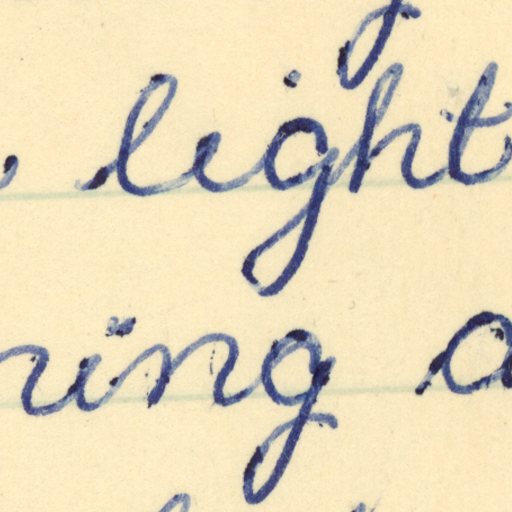 light
ring a